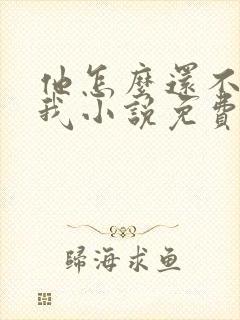 他怎麼還不
我小說免費
歸海求魚